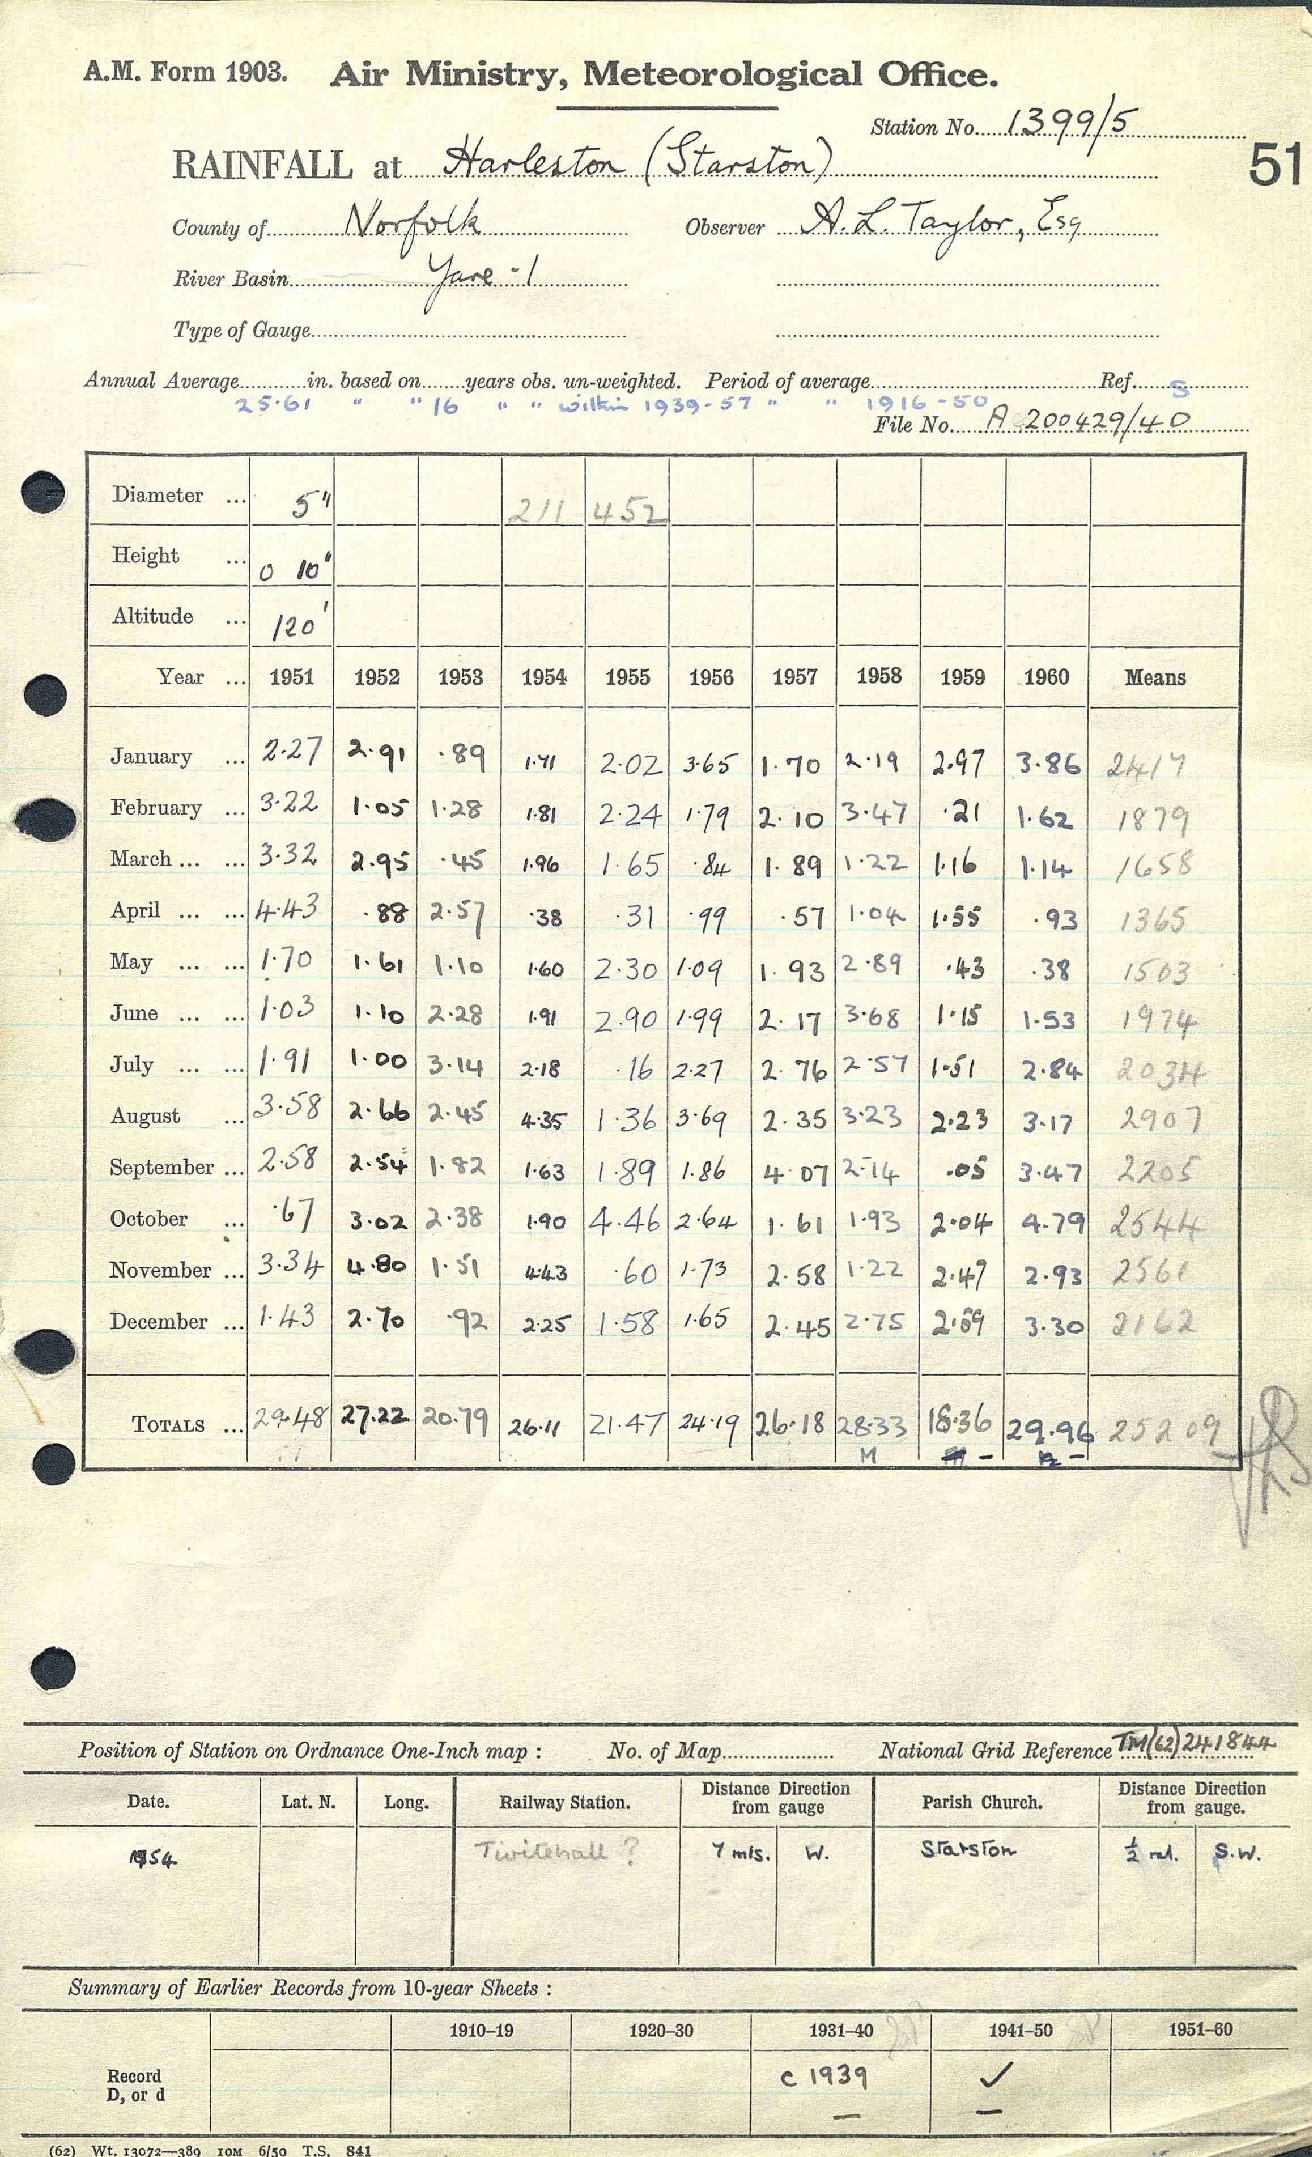 A.M. Form 1903. Air Ministry, Meteorological Office.
Station No. 1399/5
51
RAINFALL at Harleston (Starston)
County of Norfolk Observer A. L. Taylor, Esq
River Basin Yare - 1
Type of Gauge
Annual Average in. based on years obs. un-weighted. Period of average Ref. S
25.61 " " 16 " " within 1939-57 " " 1916-50
File No. A 200429/40
Diameter ... 5" 211 452
Height ... 0 10"
Altitude ... 120'
Year ... 1951 1952 1953 1954 1955 1956 1957 1958 1959 1960 Means
January ... 2.27 2.91 .89 1.71 2.02 3.65 1.70 2.19 2.97 3.86 2417
February ... 3.22 1.05 1.28 1.81 2.24 1.79 2.10 3.47 .21 1.62 1879
March ... ... 3.32 2.95 .45 1.96 1.65 .84 1.89 1.22 1.16 1.14 1658
April ... ... 4.43 .88 2.57 .38 .31 .99 .57 1.04 1.55 .93 1365
May ... ... 1.70 1.61 1.10 1.60 2.30 1.09 1.93 2.89 .43 .38 1503
June ... ... 1.03 1.10 2.28 1.91 2.90 1.99 2.17 3.68 1.15 1.53 1974
July ... ... 1.91 1.00 3.14 2.18 .16 2.27 2.76 2.57 1.51 2.84 2034
August ... 3.58 2.66 2.45 4.35 1.36 3.69 2.35 3.23 2.23 3.17 2907
September ... 2.58 2.54 1.82 1.63 1.89 1.86 4.07 2.14 .05 3.47 2205
October ... .67 3.02 2.38 1.90 4.46 2.64 1.61 1.93 2.04 4.79 2544
November ... 3.34 4.80 1.51 4.43 .60 1.73 2.58 1.22 2.47 2.93 2561
December ... 1.43 2.70 .92 2.25 1.58 1.65 2.45 2.75 2.59 3.30 2162
TOTALS ... 29.48 27.22 20.79 26.11 21.47 24.19 26.18 28.33 18.36 29.96 25209
M
Position of Station on Ordnance One-Inch map : No. of Map National Grid Reference TM(62)241844
Date. Lat. N. Long. Railway Station. Distance Direction from gauge Parish Church. Distance Direction from gauge.
1954 Twitehall ? 7 mls. W. Starston ½ ml. S.W.
Summary of Earlier Records from 10-year Sheets :
1910–19 1920–30 1931–40 1941–50 1951–60
Record D, or d c 1939 ✓
(62) Wt. 13072—389 10M 6/50 T.S. 841